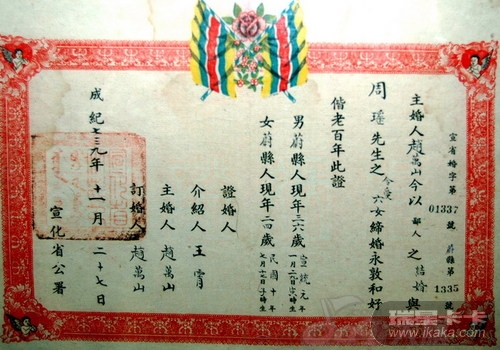 宣省婚字第01337號 蔚縣第1335號
主婚人趙萬山今以鄙人之結婚與
周瑾先生之令愛六女締婚永敦和好
偕老百年此證
男蔚縣人現年三六歲 宣統元年一月二九日子時生
女蔚縣人現年二四歲 民國十年七月十七日子時生
證婚人
介紹人 王霄
主婚人 趙萬山
訂婚人 趙萬山
成紀七三九年十一月二十七日
宣化省公署
瑞星卡卡
www.ikaka.com